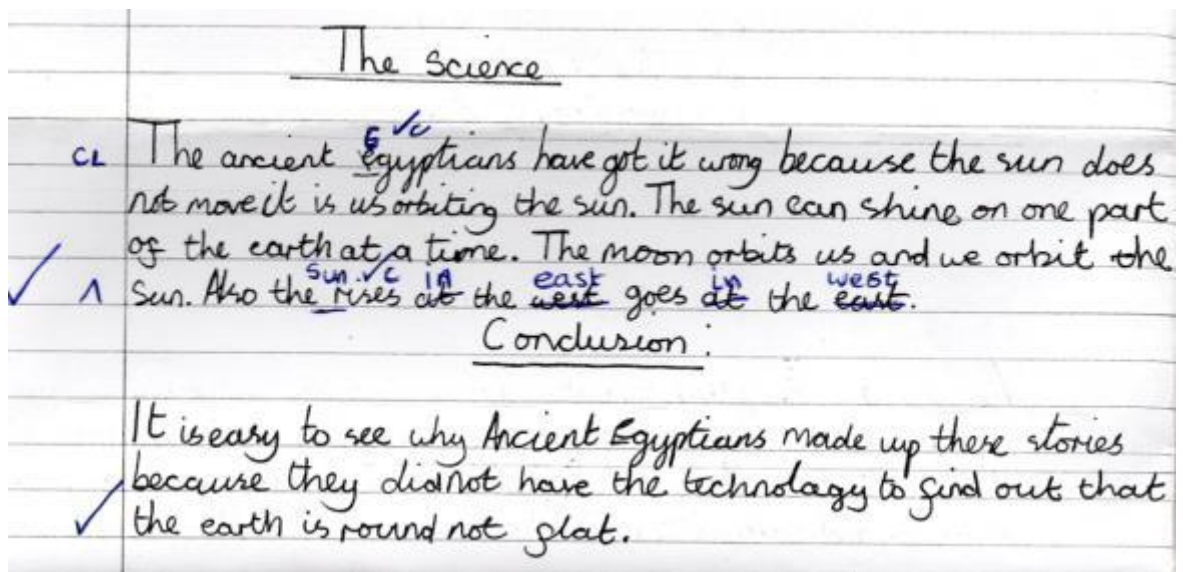 The Science
E ✓c
CL The ancient egyptians have got it wrong because the sun does
not move it is us orbiting the sun. The sun can shine on one part
of the earth at a time. The moon orbits us and we orbit the
sun ✓c in east in west
✓ ^ Sun. Also the rises at the west goes at the east.
Conclusion.
It is easy to see why Ancient Egyptians made up these stories
because they did not have the technolagy to find out that
✓ the earth is round not flat.